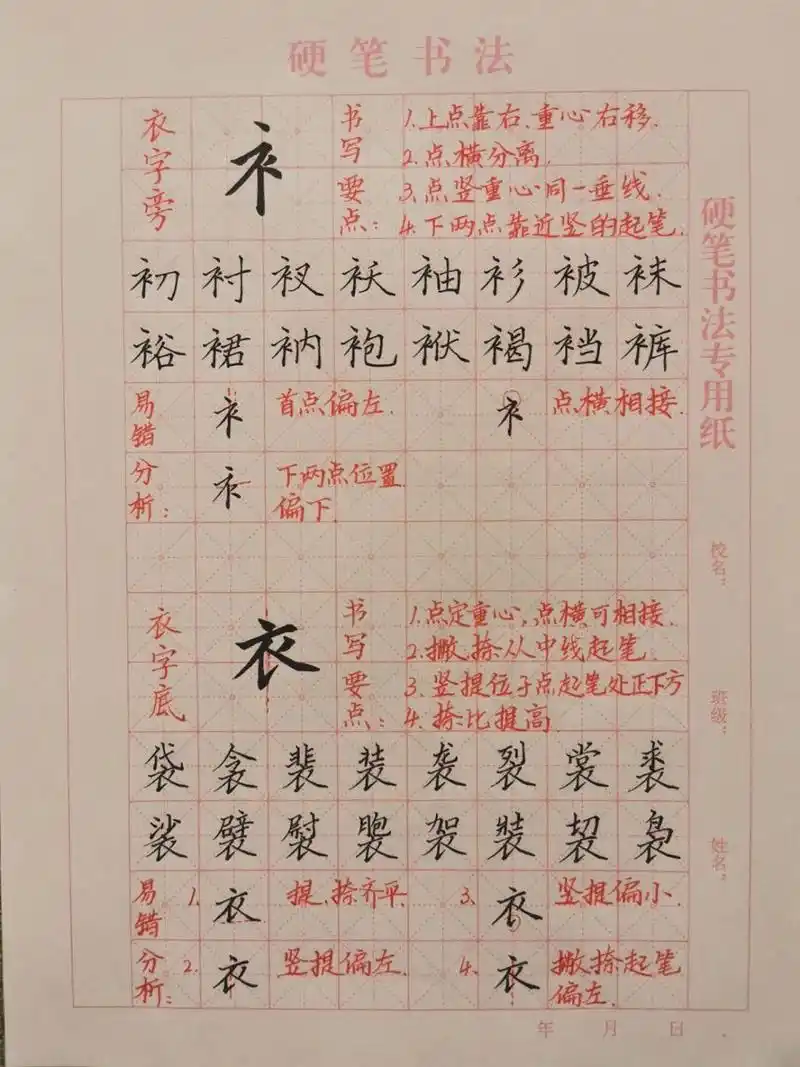 硬笔书法
衣字旁
衤
书写要点：
1.上点靠右、重心右移.
2.点横分离.
3.点竖重心同一垂线.
4.下两点靠近竖的起笔.
初衬衩袄袖衫被袜
裕裙衲袍袱褐裆裤
易错分析：
衤 首点偏左.
衤 点横相接.
衤 下两点位置偏下.
衣字底
衣
书写要点：
1.点定重心,点横可相接.
2.撇.捺从中线起笔.
3.竖提位于点起笔处正下方
4.捺比提高.
袋衾裴装袭裂裳裘
裟襞袈裊
易错分析：
1. 衣 提.捺齐平.
2. 衣 竖提偏左.
3. 衣 竖提偏小.
4. 衣 撇捺起笔偏左.
硬笔书法专用纸
校名：
班级：
姓名：
年 月 日